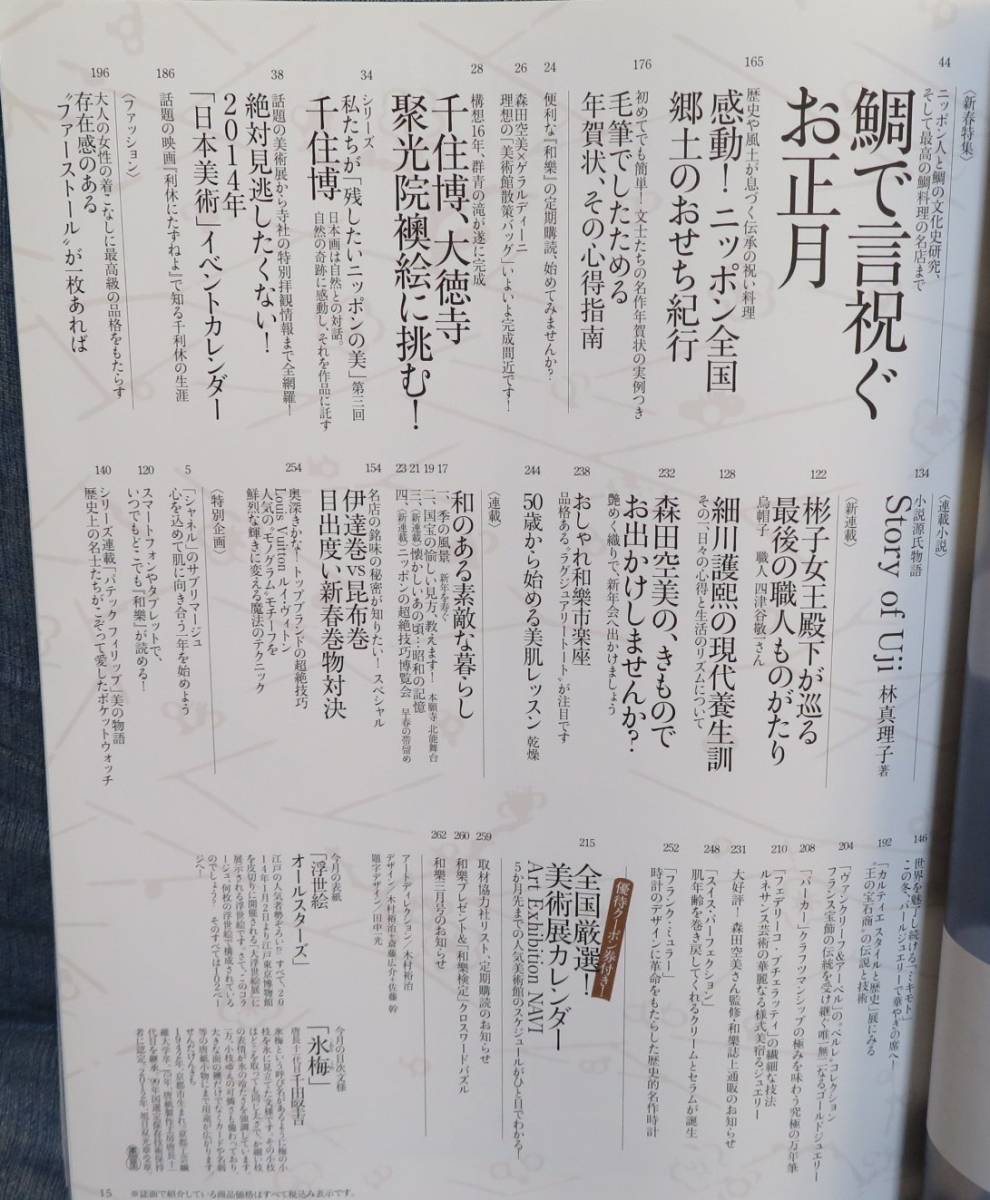 44
〈新春特集〉
ニッポン人と鯛の文化史研究、
そして最高の鯛料理の名店まで
鯛で言祝ぐ
お正月
165
歴史や風土が息づく伝承の祝い料理
感動！ニッポン全国
郷土のおせち紀行
176
初めてでも簡単！文士たちの名作年賀状の実例つき
毛筆でしたためる
年賀状、その心得指南
24
便利な『和樂』の定期購読、始めてみませんか？
26
森田空美×ゲラルディーニ
理想の「美術館散策バッグ」いよいよ完成間近です！
28
構想16年、群青の滝が遂に完成
千住博、大徳寺
聚光院襖絵に挑む！
34
シリーズ
私たちが「残したいニッポンの美」第三回
千住博
日本画は自然との対話。
自然の奇跡に感動し、それを作品に託す
38
話題の美術展から寺社の特別拝観情報まで全網羅！
絶対見逃したくない！
2014年
「日本美術」イベントカレンダー
186
話題の映画『利休にたずねよ』で知る千利休の生涯
〈ファッション〉
196
大人の女性の着こなしに最高級の品格をもたらす
存在感のある
〝ファーストール〟が一枚あれば
〈連載小説〉
134
小説源氏物語
Story of Uji 林真理子 著
〈新連載〉
122
彬子女王殿下が巡る
最後の職人ものがたり
烏帽子 職人 四津谷敬一さん
128
細川護熙の現代養生訓
その一、日々の心得と生活のリズムについて
232
森田空美の、きもので
お出かけしませんか？
艶めく織りで、新年会へ出かけましょう
238
おしゃれ和樂市楽座
品格ある〝ラグジュアリートート〟が注目です
244
50歳から始める美肌レッスン 乾燥
〈連載〉
和のある素敵な暮らし
17
一、季の風景 新年を寿ぐ
19
二、国宝の愉しい見方、教えます！ 本願寺 北能舞台
21
三、〈新連載〉懐かしいあの頃…昭和の記憶
23
四、〈新連載〉ニッポンの超絶技巧博覧会 早春の帯留め
154
名店の銘味の秘密が知りたい！スペシャル
伊達巻vs昆布巻
目出度い新春巻物対決
254
奥深きかな！トップブランドの超絶技巧
Louis Vuitton ルイ・ヴィトン
人気の〝モノグラム〟モチーフを
鮮烈な輝きに変える魔法のテクニック
〈特別企画〉
5
「シャネル」のサブリマージュ
心を込めて肌に向き合う一年を始めよう
120
スマートフォンやタブレットで、
いつでもどこでも『和樂』が読める！
140
シリーズ連載「パテック フィリップ」美の物語
歴史上の名士たちが、こぞって愛したポケットウォッチ
146
世界を魅了し続ける「ミキモト」
この冬、パールジュエリーで華やぎの席へ！
192
「カルティエ スタイルと歴史」展にみる
〝王の宝石商〟の伝説と技術
204
「ヴァン クリーフ＆アーペル」の〝ペルレ〟コレクション
フランス宝飾の伝統を受け継ぐ唯一無二なるゴールドジュエリー
208
「パーカー」クラフツマンシップの極みを味わう究極の万年筆
210
「フェデリーコ・ブチェラッティ」の繊細な技法
ルネサンス芸術の華麗なる様式美宿るジュエリー
231
大好評！森田空美さん監修・和樂誌上通販のお知らせ
248
「スイス・パーフェクション」
肌年齢を巻き戻してくれるクリームとセラムが誕生
252
「フランク・ミュラー」
時計のデザインに革命をもたらした歴史的名作時計
優待クーポン券付き！
215
全国厳選！
美術展カレンダー
Art Exhibition NAVI
5か月先までの人気美術館のスケジュールがひと目でわかる！
259
取材協力社リスト、定期購読のお知らせ
260
和樂プレゼント＆「和樂検定」クロスワードパズル
262
和樂三月号のお知らせ
アートディレクション／木村裕治
デザイン／木村裕治＋斎藤広介＋佐藤 幹
題字デザイン／田中一光
今月の表紙
「浮世絵
オールスターズ」
江戸の人気者勢ぞろい!?　すべて、20
14年1月2日より江戸東京博物館
を皮切りに開催される「大浮世絵展」に
展示される浮世絵です。さて、このコラ
ージュ、何枚の浮世絵で構成されている
のでしょう？　そのすべては102ペー
ジへ！
今月の目次文様
「氷梅」
唐長十一代目 千田堅吉
15
※誌面で紹介している商品価格はすべて税込み表示です。